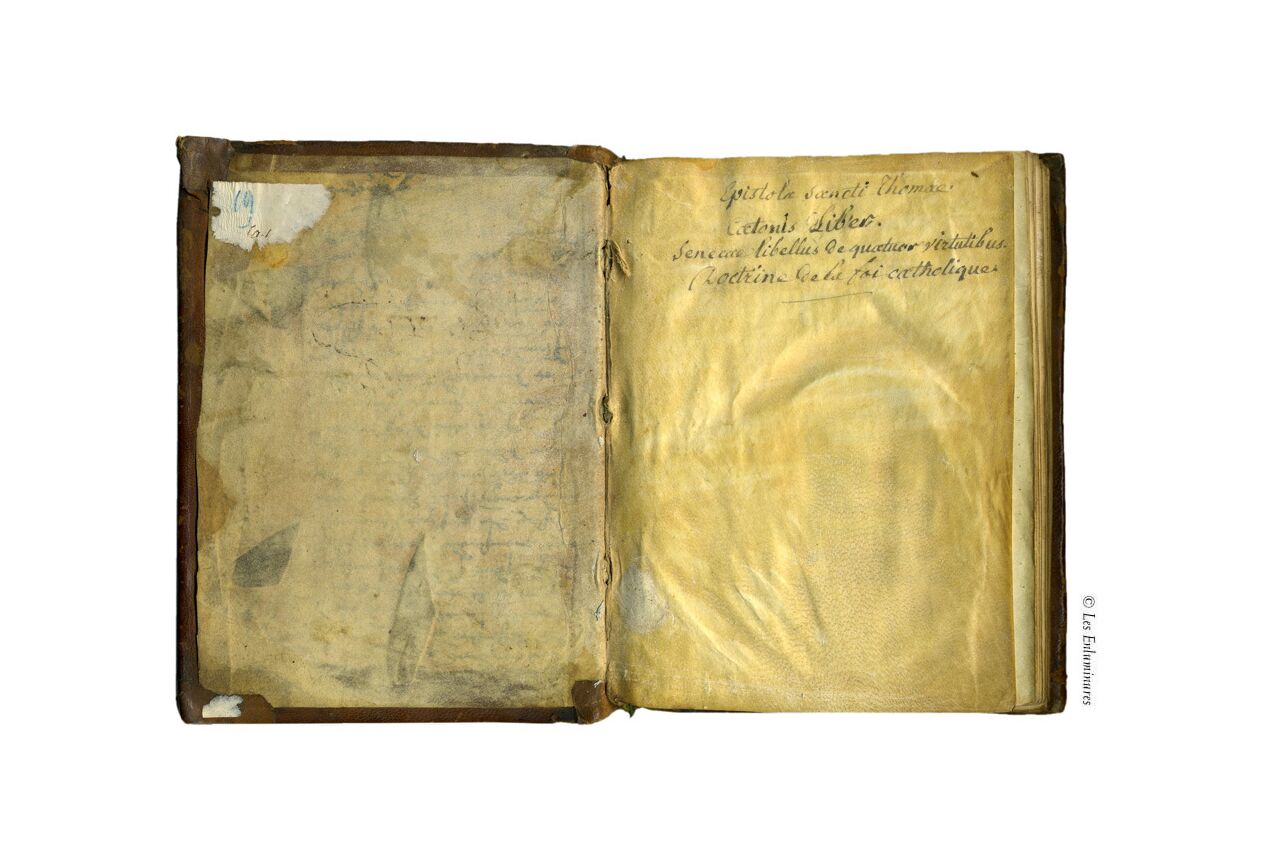 19
Epistola sancti Thomae
Catonis Liber.
Senecae libellus de quatuor virtutibus.
Doctrine de la foi catholique
© Les Enluminures